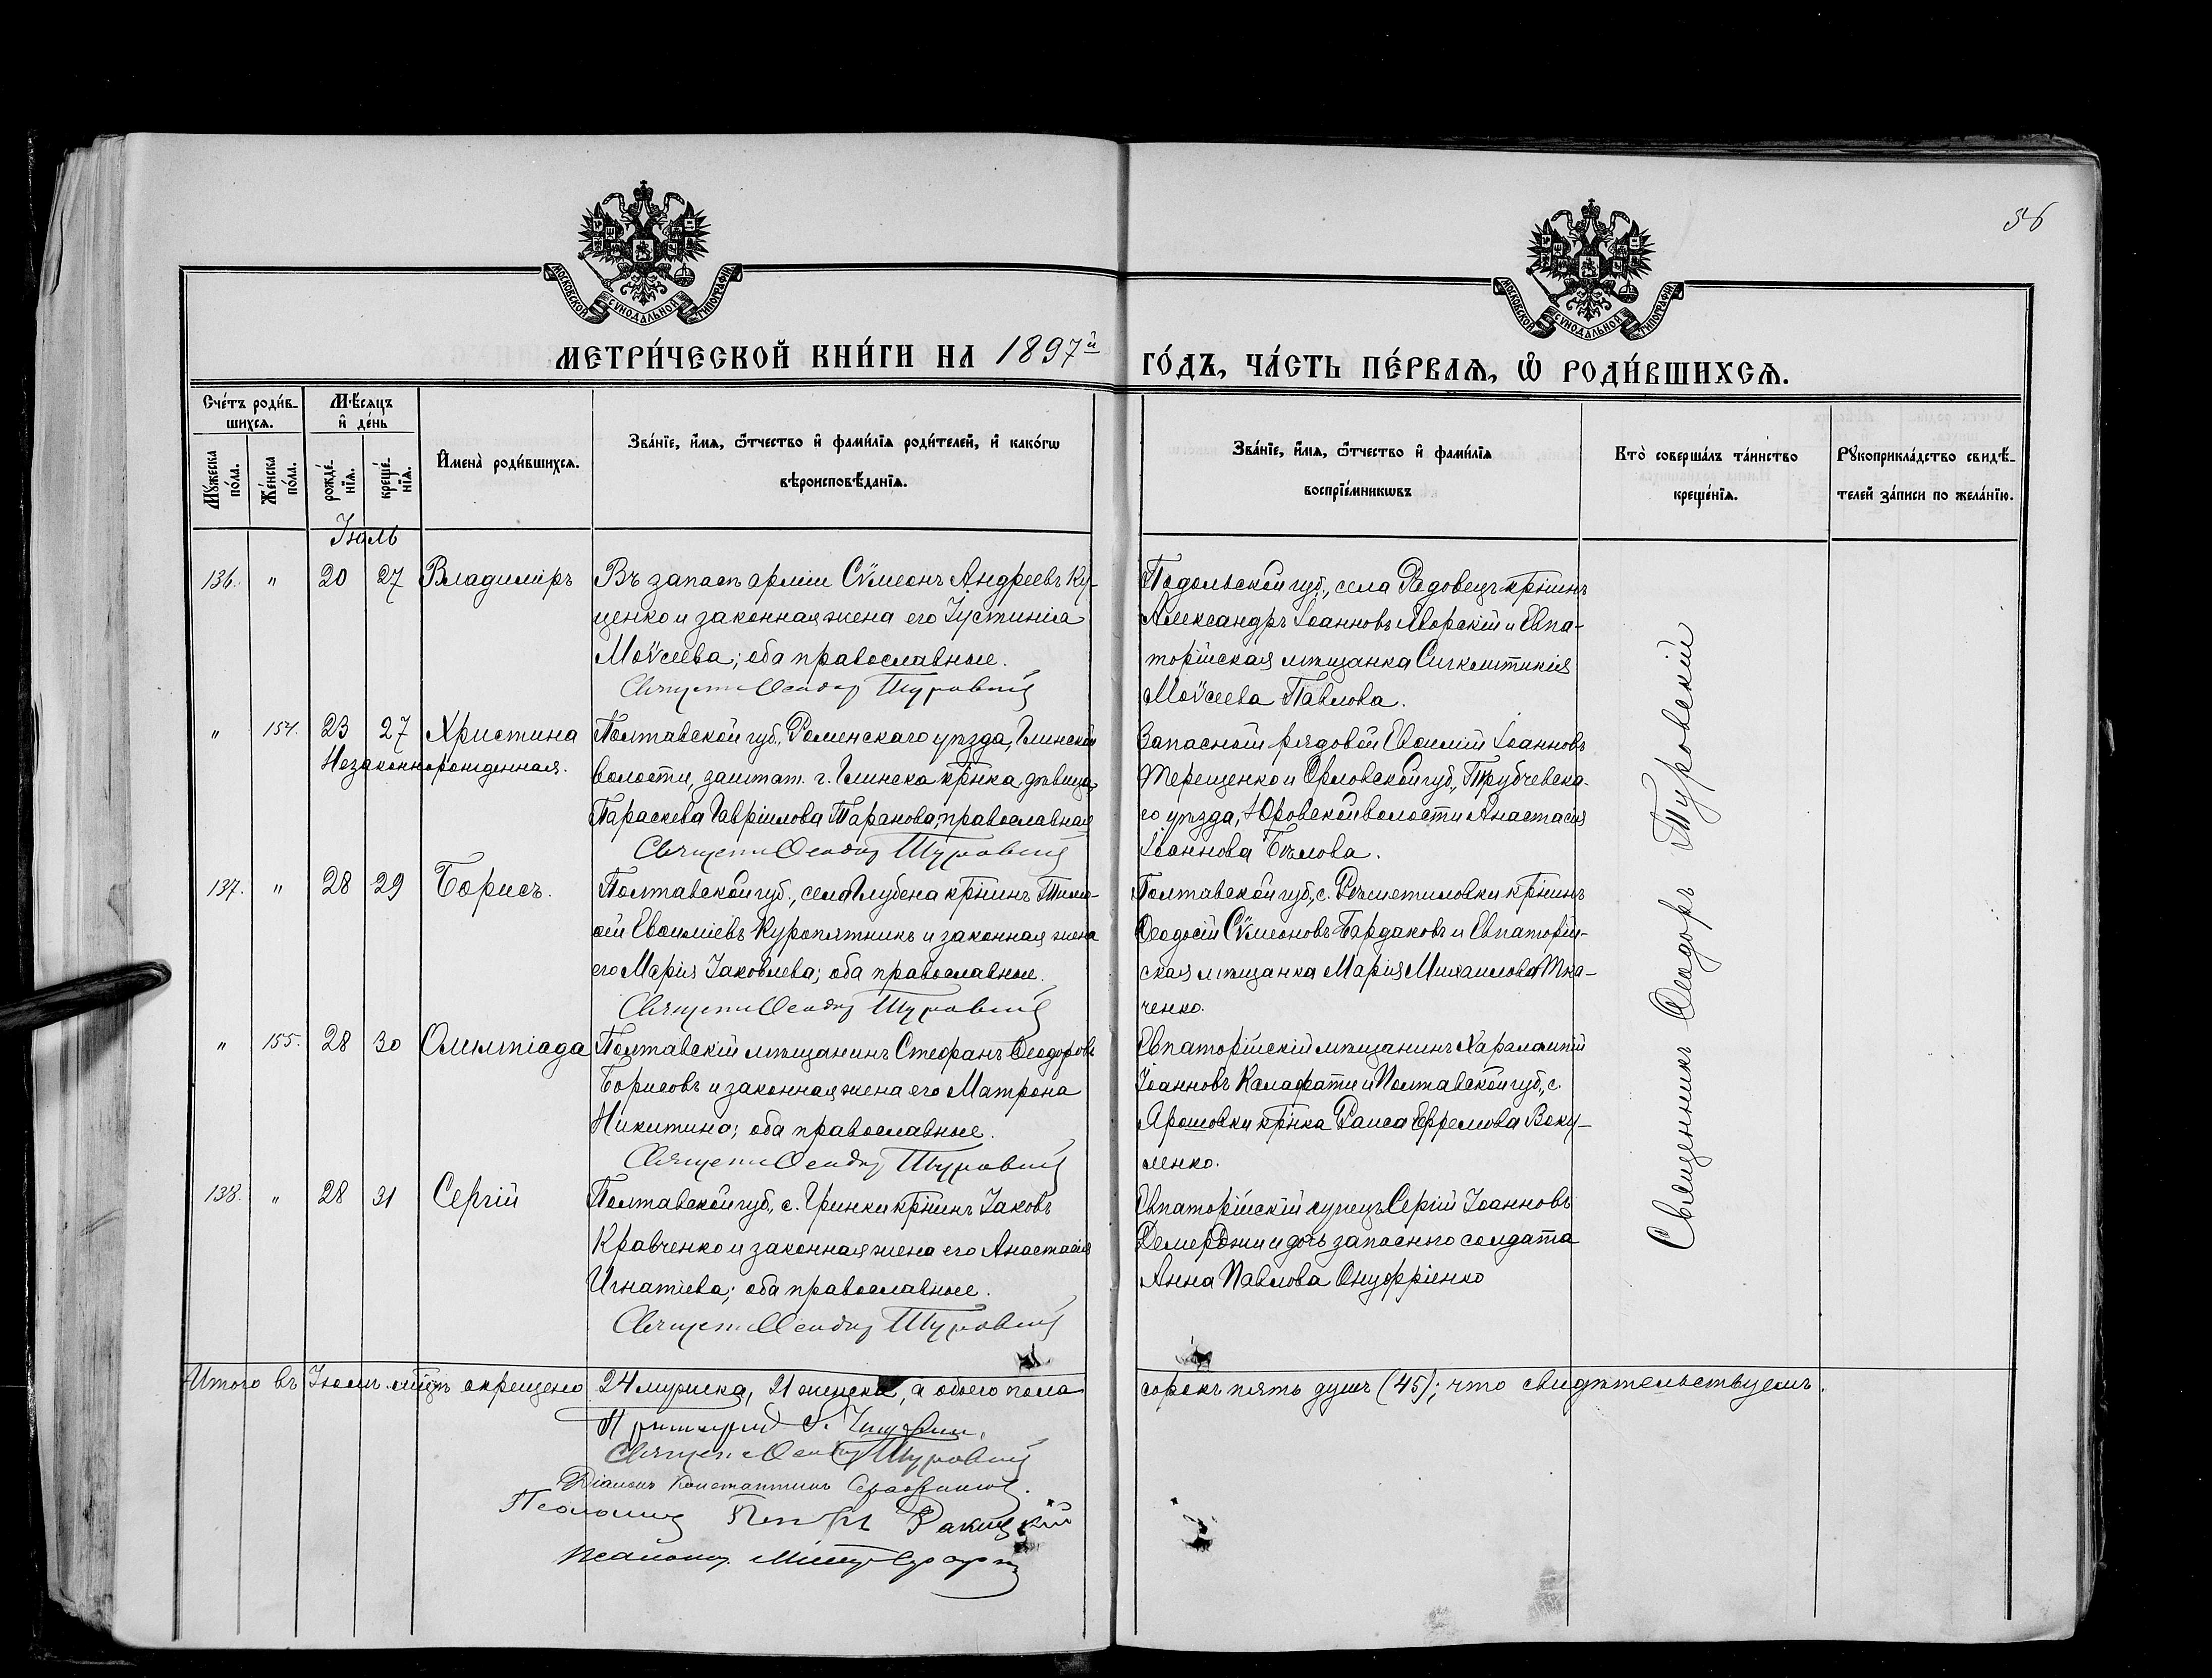 56
МОСКОВСКОЙ СѴНОДАЛЬНОЙ ТИПОГРАФІИ
МОСКОВСКОЙ СѴНОДАЛЬНОЙ ТИПОГРАФІИ
МЕТРИ́ЧЕСКОЙ КНИ́ГИ НА 1897й ГО́ДЪ, ЧА́СТЬ ПЕ́РВАѦ, Ѡ҆ РОДИ́ВШИХСѦ.
Сче́тъ роди́в-
шихсѧ.
Мꙋ́жеска
по́ла.
Же́нска
по́ла.
Мѣ́сѧцъ
и҆ де́нь
рожде́-
нїѧ.
креще́-
нїѧ.
И҆мена̀ роди́вшихсѧ.
Зва́нїе, и҆́мѧ, ѻ҆́тчество и҆ фами́лїѧ роди́телей, и҆ како́гѡ
вѣроисповѣ́данїѧ.
Зва́нїе, и҆́мѧ, ѻ҆́тчество и҆ фами́лїѧ
воспрїе́мникѡвъ
Кто̀ соверша́лъ та́инство
креще́нїѧ.
Рꙋкоприкла́дство свидѣ́-
телей за́писи по жела́нїю.
Іюль
136. " 20 27 Владиміръ
Въ запасѣ арміи Сѵмеонъ Андреевъ Ку-
ценко и законная жена его Іустинія
Моѵсеева; оба православные.
Священ. Ѳеодор Туровскій
Подольской губ., села Радовецъ кр̃нинъ
Александръ Іоанновъ Яворскій и Евпа-
торійская мѣщанка Сигклитикія
Моѵсеева Павлова.
" 154. 23 27 Христина
Незаконнорожденная.
Полтавской губ., Роменскаго уѣзда, Глинской
волости, заштат. г. Глинска кр̃нка дѣвица
Параскева Гавріилова Таранова, православная
Священ. Ѳеодор Туровскій
Запасной рядовой Евѳимій Іоанновъ
Терещенко и Орловской губ., Трубчевска-
го уѣзда, Юровской волости Анастасія
Іоаннова Бѣлова.
137. " 28 29 Борисъ.
Полтавской губ., села Глубена кр̃нинъ Тимо-
ѳей Евѳиміевъ Куропятникъ и законная жена
его Марія Іаковлева; оба православные.
Священ. Ѳеодор Туровскій
Полтавской губ., с. Рѣшетиловки кр̃нинъ
Ѳеодосій Сѵмеоновъ Бардаковъ и Евпаторій-
ская мѣщанка Марія Михаилова Тка-
ченко.
" 155. 28 30 Олимпіада
Полтавскій мѣщанинъ Стефанъ Ѳеодоровъ
Борисовъ и законная жена его Матрона
Никитина; оба православные.
Священ. Ѳеодор Туровскій
Евпаторійскій мѣщанинъ Харалампій
Іоанновъ Калафати и Полтавской губ., с.
Ярошовки кр̃нка Раиса Ефремова Баку-
ленко.
138. " 28 31 Сергій
Полтавской губ., с. Гринки кр̃нинъ Іаковъ
Кравченко и законная жена его Анастасія
Игнатіева; оба православные.
Священ. Ѳеодор Туровскій
Евпаторійскій купецъ Сергій Іоанновъ
Демерджи и дочь запаснаго солдата
Анна Павлова Онуфріенко
Священникъ Ѳеодоръ Туровскій
Итого въ Іюлѣ мѣсяцѣ окрещено 24 мужеска, 21 женска, а обоего пола сорокъ пять душъ (45); что свидѣтельствуемъ.
Протоіерей
Священ. Ѳеодор Туровскій
Діаконъ Константинъ
Псаломщ. Петръ Ракицкій
Псаломщ.